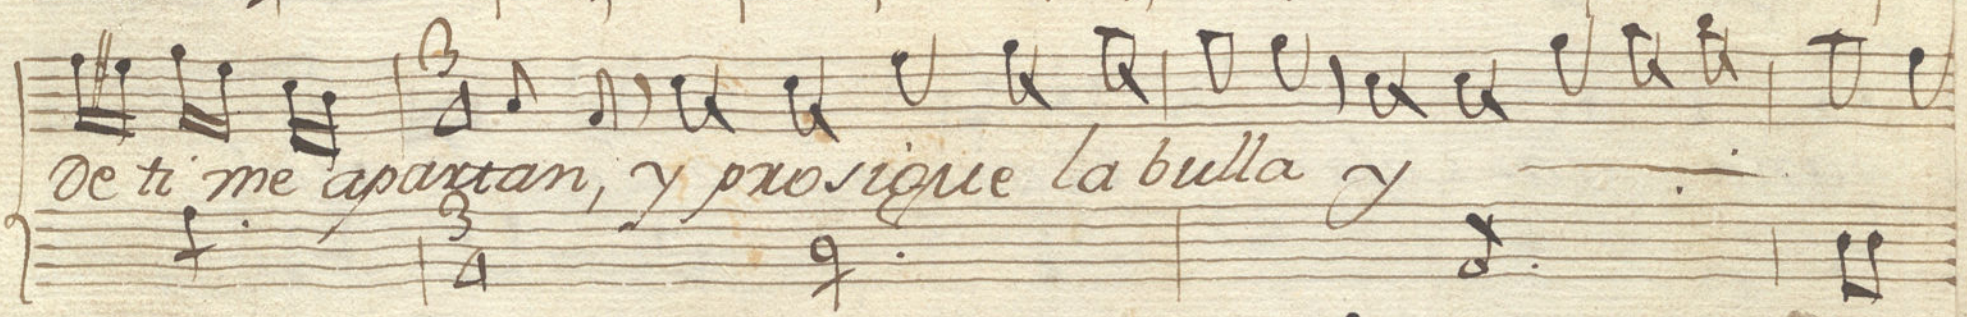 3
4
De ti me apartan, y prosigue la bulla y
3
4